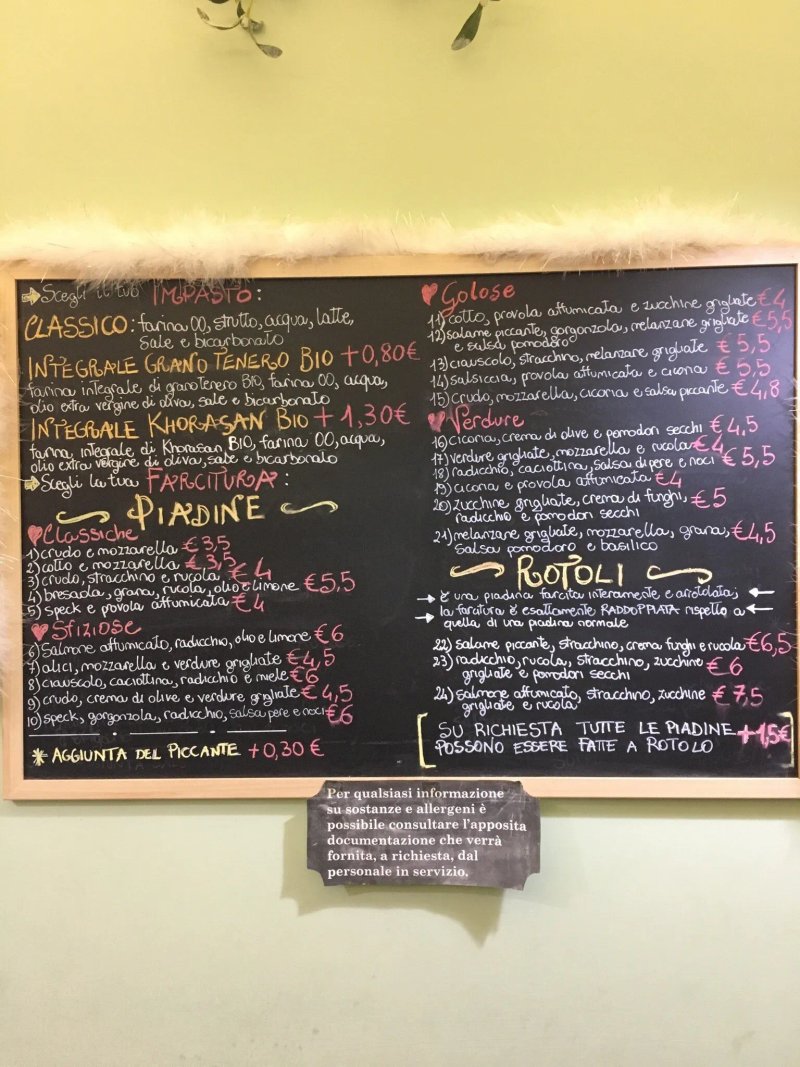 Scegli il tuo IMPASTO:
CLASSICO: farina 00, strutto, acqua, latte,
sale e bicarbonato
INTEGRALE GRANO TENERO BIO +0,80€
farina integrale di grano tenero BIO, farina 00, acqua,
olio extra vergine di oliva, sale e bicarbonato
INTEGRALE KHORASAN BIO + 1,30€
farina integrale di Khorasan BIO, farina 00, acqua,
olio extra vergine di oliva, sale e bicarbonato
Scegli la tua FARCITURA:
PIADINE
Classiche
1) crudo e mozzarella €3,5
2) cotto e mozzarella €3,5
3) crudo, stracchino e rucola €4
4) bresaola, grana, rucola, olio e limone €5,5
5) speck e provola affumicata €4
Sfiziose
6) salmone affumicato, radicchio, olio e limone €6
7) alici, mozzarella e verdure grigliate €4,5
8) ciauscolo, caciottina, radicchio e miele €6
9) crudo, crema di olive e verdure grigliate €4,5
10) speck, gorgonzola, radicchio, salsa pere e noci €6
* AGGIUNTA DEL PICCANTE +0,30 €
Golose
11) cotto, provola affumicata e zucchine grigliate €4
12) salame piccante, gorgonzola, melanzane grigliate €5,5
e salsa pomodoro
13) ciauscolo, stracchino, melanzane grigliate €5,5
14) salsiccia, provola affumicata e cicoria €5,5
15) crudo, mozzarella, cicoria e salsa piccante €4,8
Verdure
16) cicoria, crema di olive e pomodori secchi €4,5
17) verdure grigliate, mozzarella e rucola €4
18) radicchio, caciottina, salsa di pere e noci €5,5
19) cicoria e provola affumicata €4
20) zucchine grigliate, crema di funghi, €5
radicchio e pomodori secchi
21) melanzane grigliate, mozzarella, grana, €4,5
salsa pomodoro e basilico
ROTOLI
è una piadina farcita interamente e arrotolata;
la farcitura è esattamente RADDOPPIATA rispetto a
quella di una piadina normale
22) salame piccante, stracchino, crema funghi e rucola €6,5
23) radicchio, rucola, stracchino, zucchine €6
grigliate e pomodori secchi
24) salmone affumicato, stracchino, zucchine €7,5
grigliate e rucola
SU RICHIESTA TUTTE LE PIADINE +1,5€
POSSONO ESSERE FATTE A ROTOLO
Per qualsiasi informazione
su sostanze e allergeni è
possibile consultare l'apposita
documentazione che verrà
fornita, a richiesta, dal
personale in servizio.